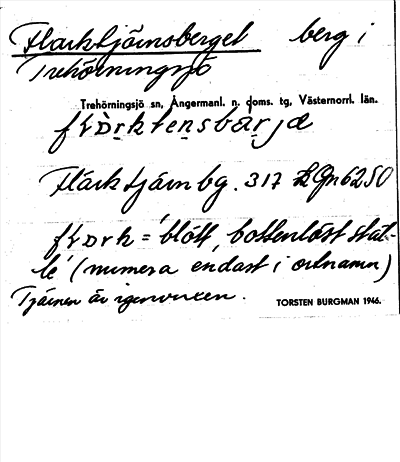 Flarktjärnsberget berg i
Trehörningsjö
Trehörningsjö sn, Ångermanl. n. doms. tg, Västernorrl. län.
Flärktjärnbg. 317 Gn6250
= 'blött, bottenlöst ställe'
le' (numera endast i ortnamn)
Tjärnen är igenvuxen.
TORSTEN BURGMAN 1946.